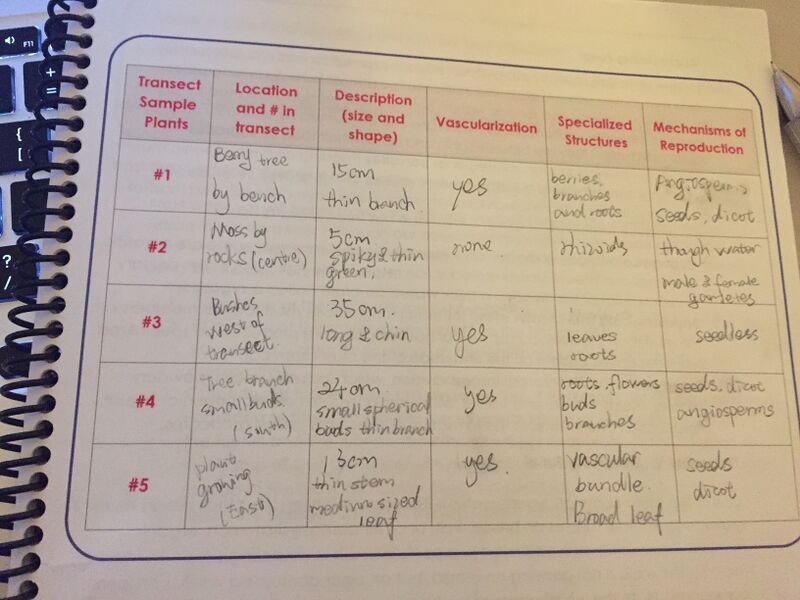 F11
Transect
Sample
Plants
Location
and # in
transect
Description
(size and
shape)
Vascularization
Specialized
Structures
Mechanisms of
Reproduction
#1
Berry tree
by bench
15cm
thin branch.
yes
berries,
branches
and roots
Angiosperms
seeds, dicot
#2
Moss by
rocks (centre)
5cm
spiky & thin
green.
none.
rhizoids
though water
male & female
gametes
#3
Bushes
west of
transect
35cm.
long & thin
yes
leaves
roots
seedless
#4
Tree branch
small buds.
(south)
24cm
small spherical
buds thin branch
yes
roots, flowers
buds
branches
seeds, dicot
angiosperms
#5
plant
growing
(East)
13cm
thin stem
medium sized
leaf
yes.
vascular
bundle.
Broad leaf
seeds
dicot